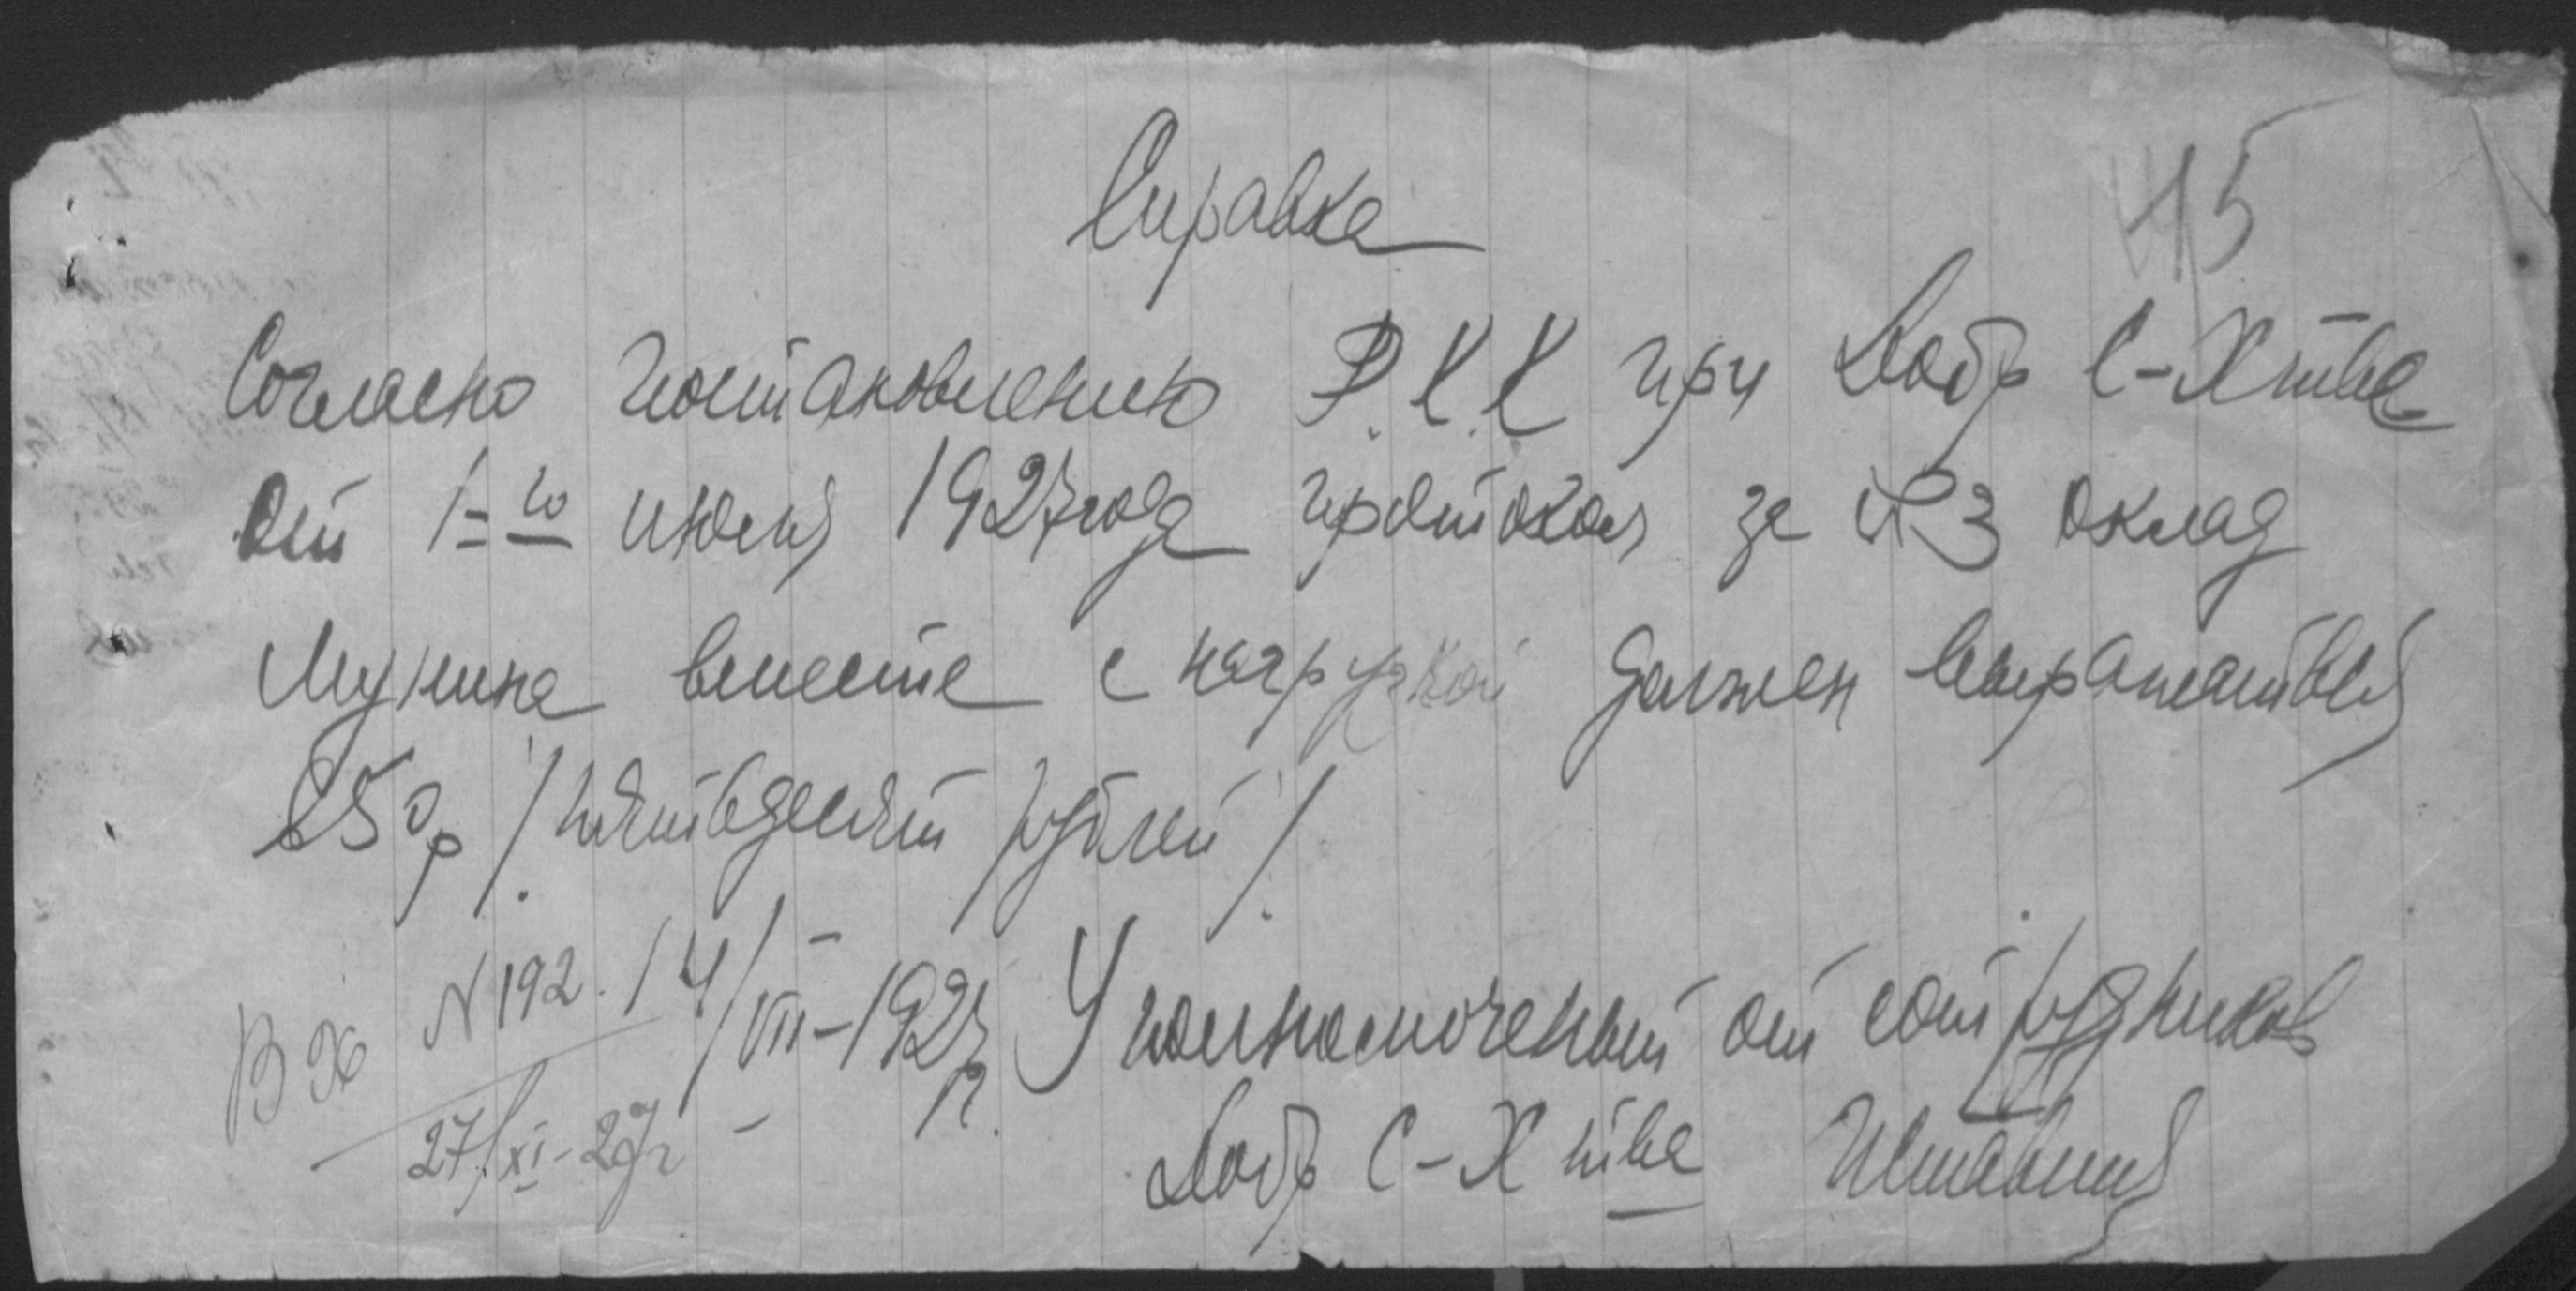 45
Справка
Согласно постановлению Р.К.К при Добр С-Хтва
от 1-го июля 1927 года протокол за №3 оклад
Мунина вместе с нагрузкой должен выражаться
50р /пятьдесят рублей/.
Вх N192. 14/VIII-1927 г. Уполномоченый от сотрудников
27/XI-27г Добр С-Х тва